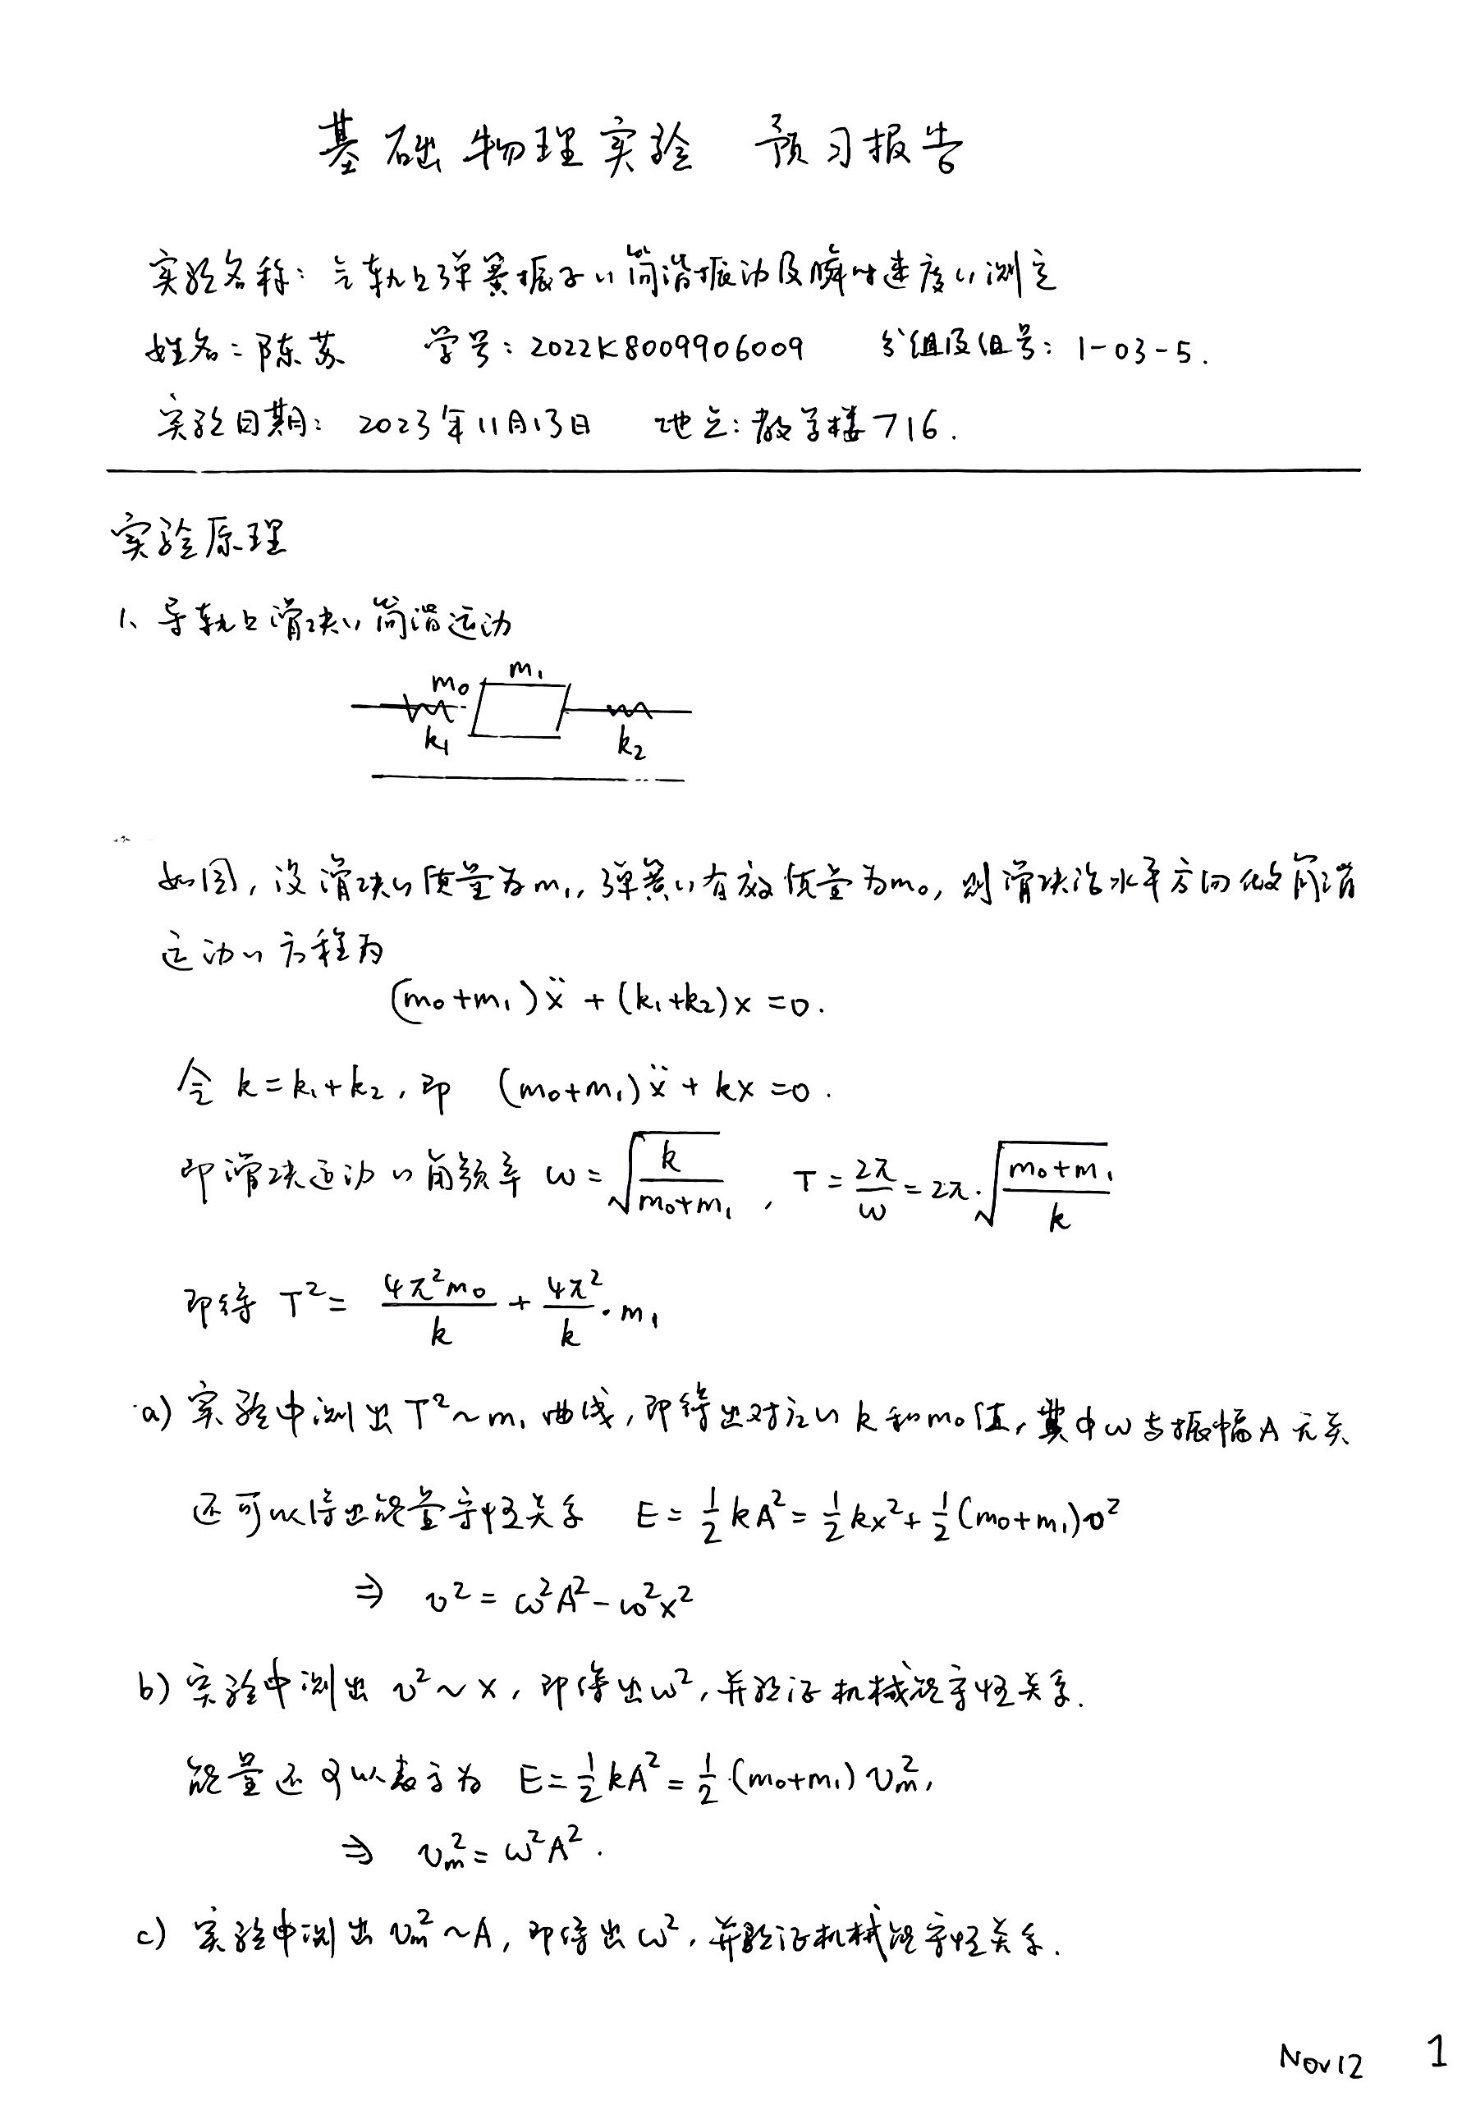 基础物理实验 预习报告
实验名称：气轨上弹簧振子的简谐振动及瞬时速度的测定
姓名：陈苏 学号：2022K8009906009 分组及组号：1-03-5.
实验日期：2023年11月13日 地点：教学楼716.
实验原理
1、导轨上滑块的简谐运动
m₀ m₁
k₁ k₂
如图，设滑块的质量为m₁，弹簧的有效质量为m₀，则滑块沿水平方向做简谐
运动的方程为
(m₀+m₁)ẍ + (k₁+k₂)x = 0.
令 k=k₁+k₂，即 (m₀+m₁)ẍ + kx = 0.
即滑块运动的角频率 ω = √(k/(m₀+m₁)) ，T = 2π/ω = 2π·√((m₀+m₁)/k)
即得 T² = 4π²m₀/k + 4π²/k · m₁
a) 实验中测出 T²~m₁ 曲线，即得出对应的 k 和 m₀ 值，其中ω与振幅A无关
还可以得出能量守恒关系 E = ½kA² = ½kx² + ½(m₀+m₁)v²
⇒ v² = ω²A² − ω²x²
b) 实验中测出 v²~x，即得出ω²，并验证机械能守恒关系.
能量还可以表示为 E = ½kA² = ½(m₀+m₁)vₘ²，
⇒ vₘ² = ω²A².
c) 实验中测出 vₘ²~A，即得出ω²，并验证机械能守恒关系.
Nov 12 1